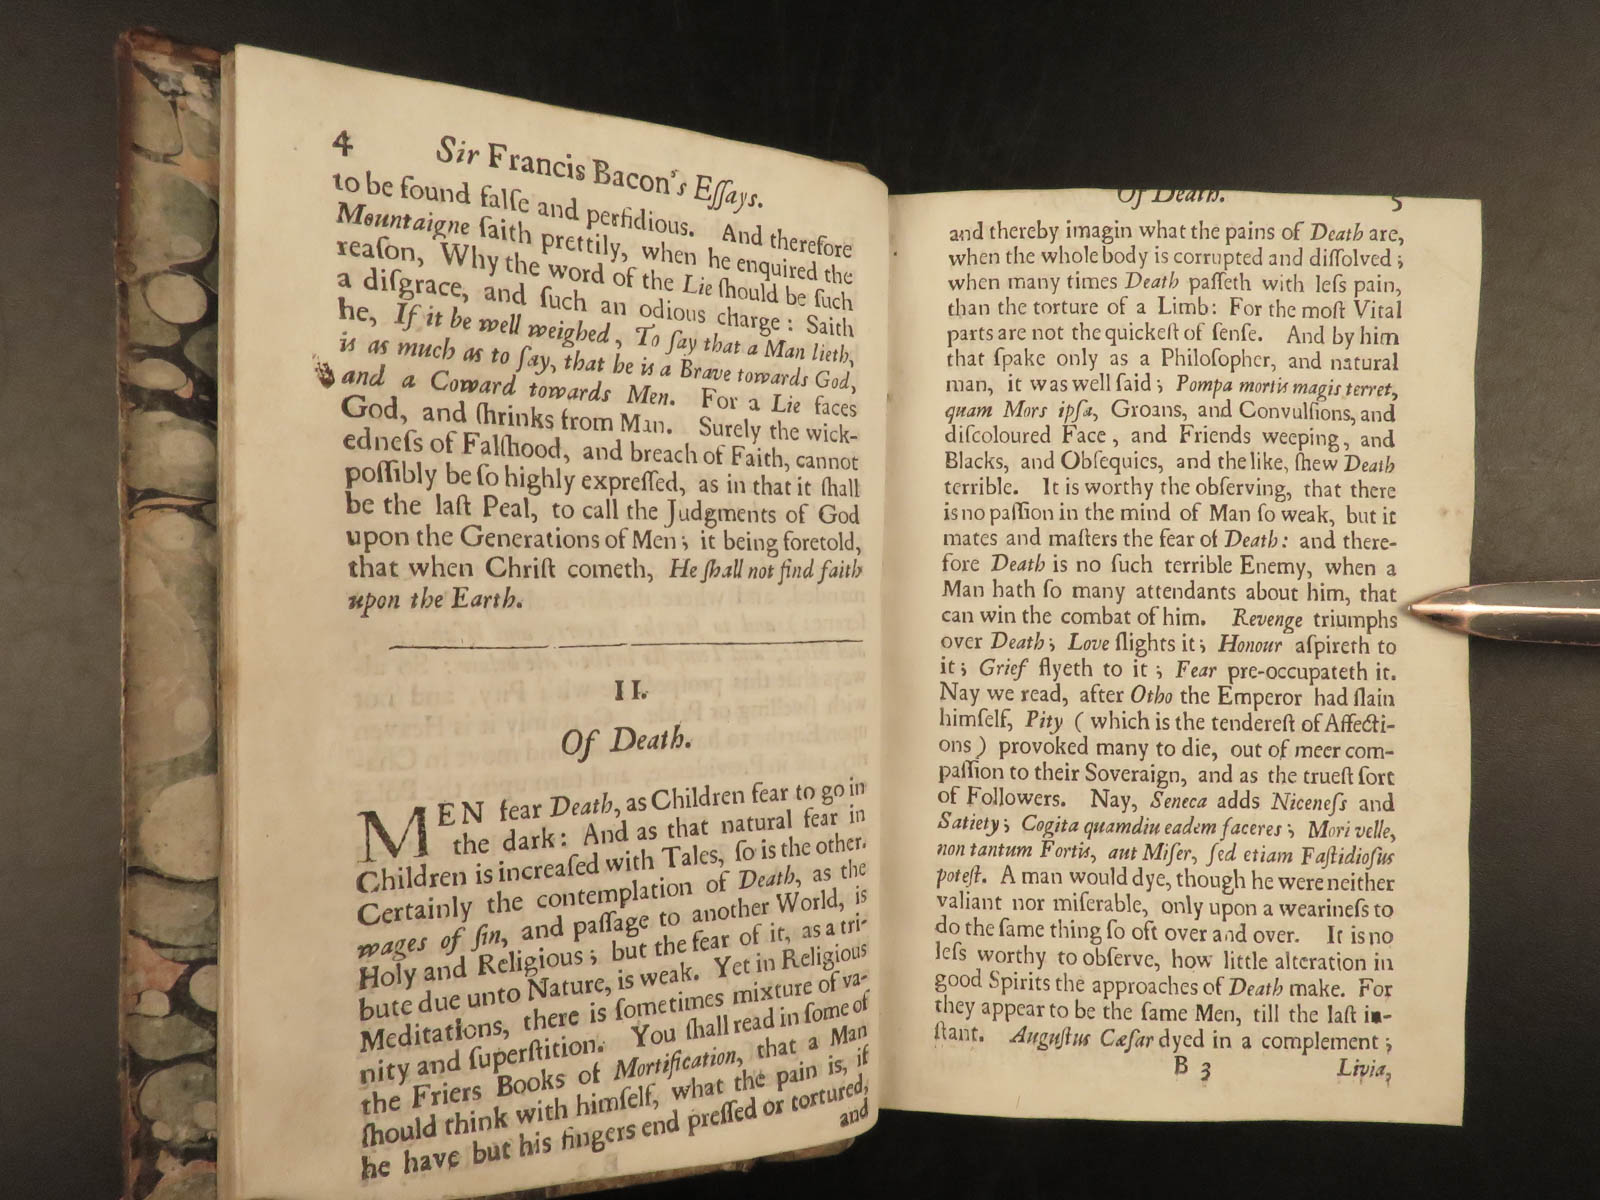 4 Sir Francis Bacon's Eſſays.
to be found falſe and perfidious. And therefore
Mountaigne ſaith prettily, when he enquired the
reaſon, Why the word of the Lie ſhould be ſuch
a diſgrace, and ſuch an odious charge: Saith
he, If it be well weighed, To ſay that a Man lieth,
is as much as to ſay, that he is a Brave towards God,
and a Coward towards Men. For a Lie faces
God, and ſhrinks from Man. Surely the wick-
edneſs of Falſhood, and breach of Faith, cannot
poſſibly be ſo highly expreſſed, as in that it ſhall
be the laſt Peal, to call the Judgments of God
upon the Generations of Men; it being foretold,
that when Chriſt cometh, He ſhall not find faith
upon the Earth.
II.
Of Death.
MEN fear Death, as Children fear to go in
the dark: And as that natural fear in
Children is increaſed with Tales, ſo is the other.
Certainly the contemplation of Death, as the
wages of ſin, and paſſage to another World, is
Holy and Religious; but the fear of it, as a tri-
bute due unto Nature, is weak. Yet in Religious
Meditations, there is ſometimes mixture of va-
nity and ſuperſtition. You ſhall read in ſome of
the Friers Books of Mortification, that a Man
ſhould think with himſelf, what the pain is, if
he have but his fingers end preſſed or tortured,
and
Of Death. 5
and thereby imagin what the pains of Death are,
when the whole body is corrupted and diſſolved;
when many times Death paſſeth with leſs pain,
than the torture of a Limb: For the moſt Vital
parts are not the quickeſt of ſenſe. And by him
that ſpake only as a Philoſopher, and natural
man, it was well ſaid; Pompa mortis magis terret,
quam Mors ipſa, Groans, and Convulſions, and
diſcoloured Face, and Friends weeping, and
Blacks, and Obſequies, and the like, ſhew Death
terrible. It is worthy the obſerving, that there
is no paſſion in the mind of Man ſo weak, but it
mates and maſters the fear of Death: and there-
fore Death is no ſuch terrible Enemy, when a
Man hath ſo many attendants about him, that
can win the combat of him. Revenge triumphs
over Death; Love ſlights it; Honour aſpireth to
it; Grief flyeth to it; Fear pre-occupateth it.
Nay we read, after Otho the Emperor had ſlain
himſelf, Pity (which is the tendereſt of Affecti-
ons) provoked many to die, out of meer com-
paſſion to their Soveraign, and as the trueſt ſort
of Followers. Nay, Seneca adds Niceneſs and
Satiety; Cogita quamdiu eadem faceres; Mori velle,
non tantum Fortis, aut Miſer, ſed etiam Faſtidioſus
poteſt. A man would dye, though he were neither
valiant nor miſerable, only upon a wearineſs to
do the ſame thing ſo oft over and over. It is no
leſs worthy to obſerve, how little alteration in
good Spirits the approaches of Death make. For
they appear to be the ſame Men, till the laſt in-
ſtant. Auguſtus Cæſar dyed in a complement;
B 3 Livia,